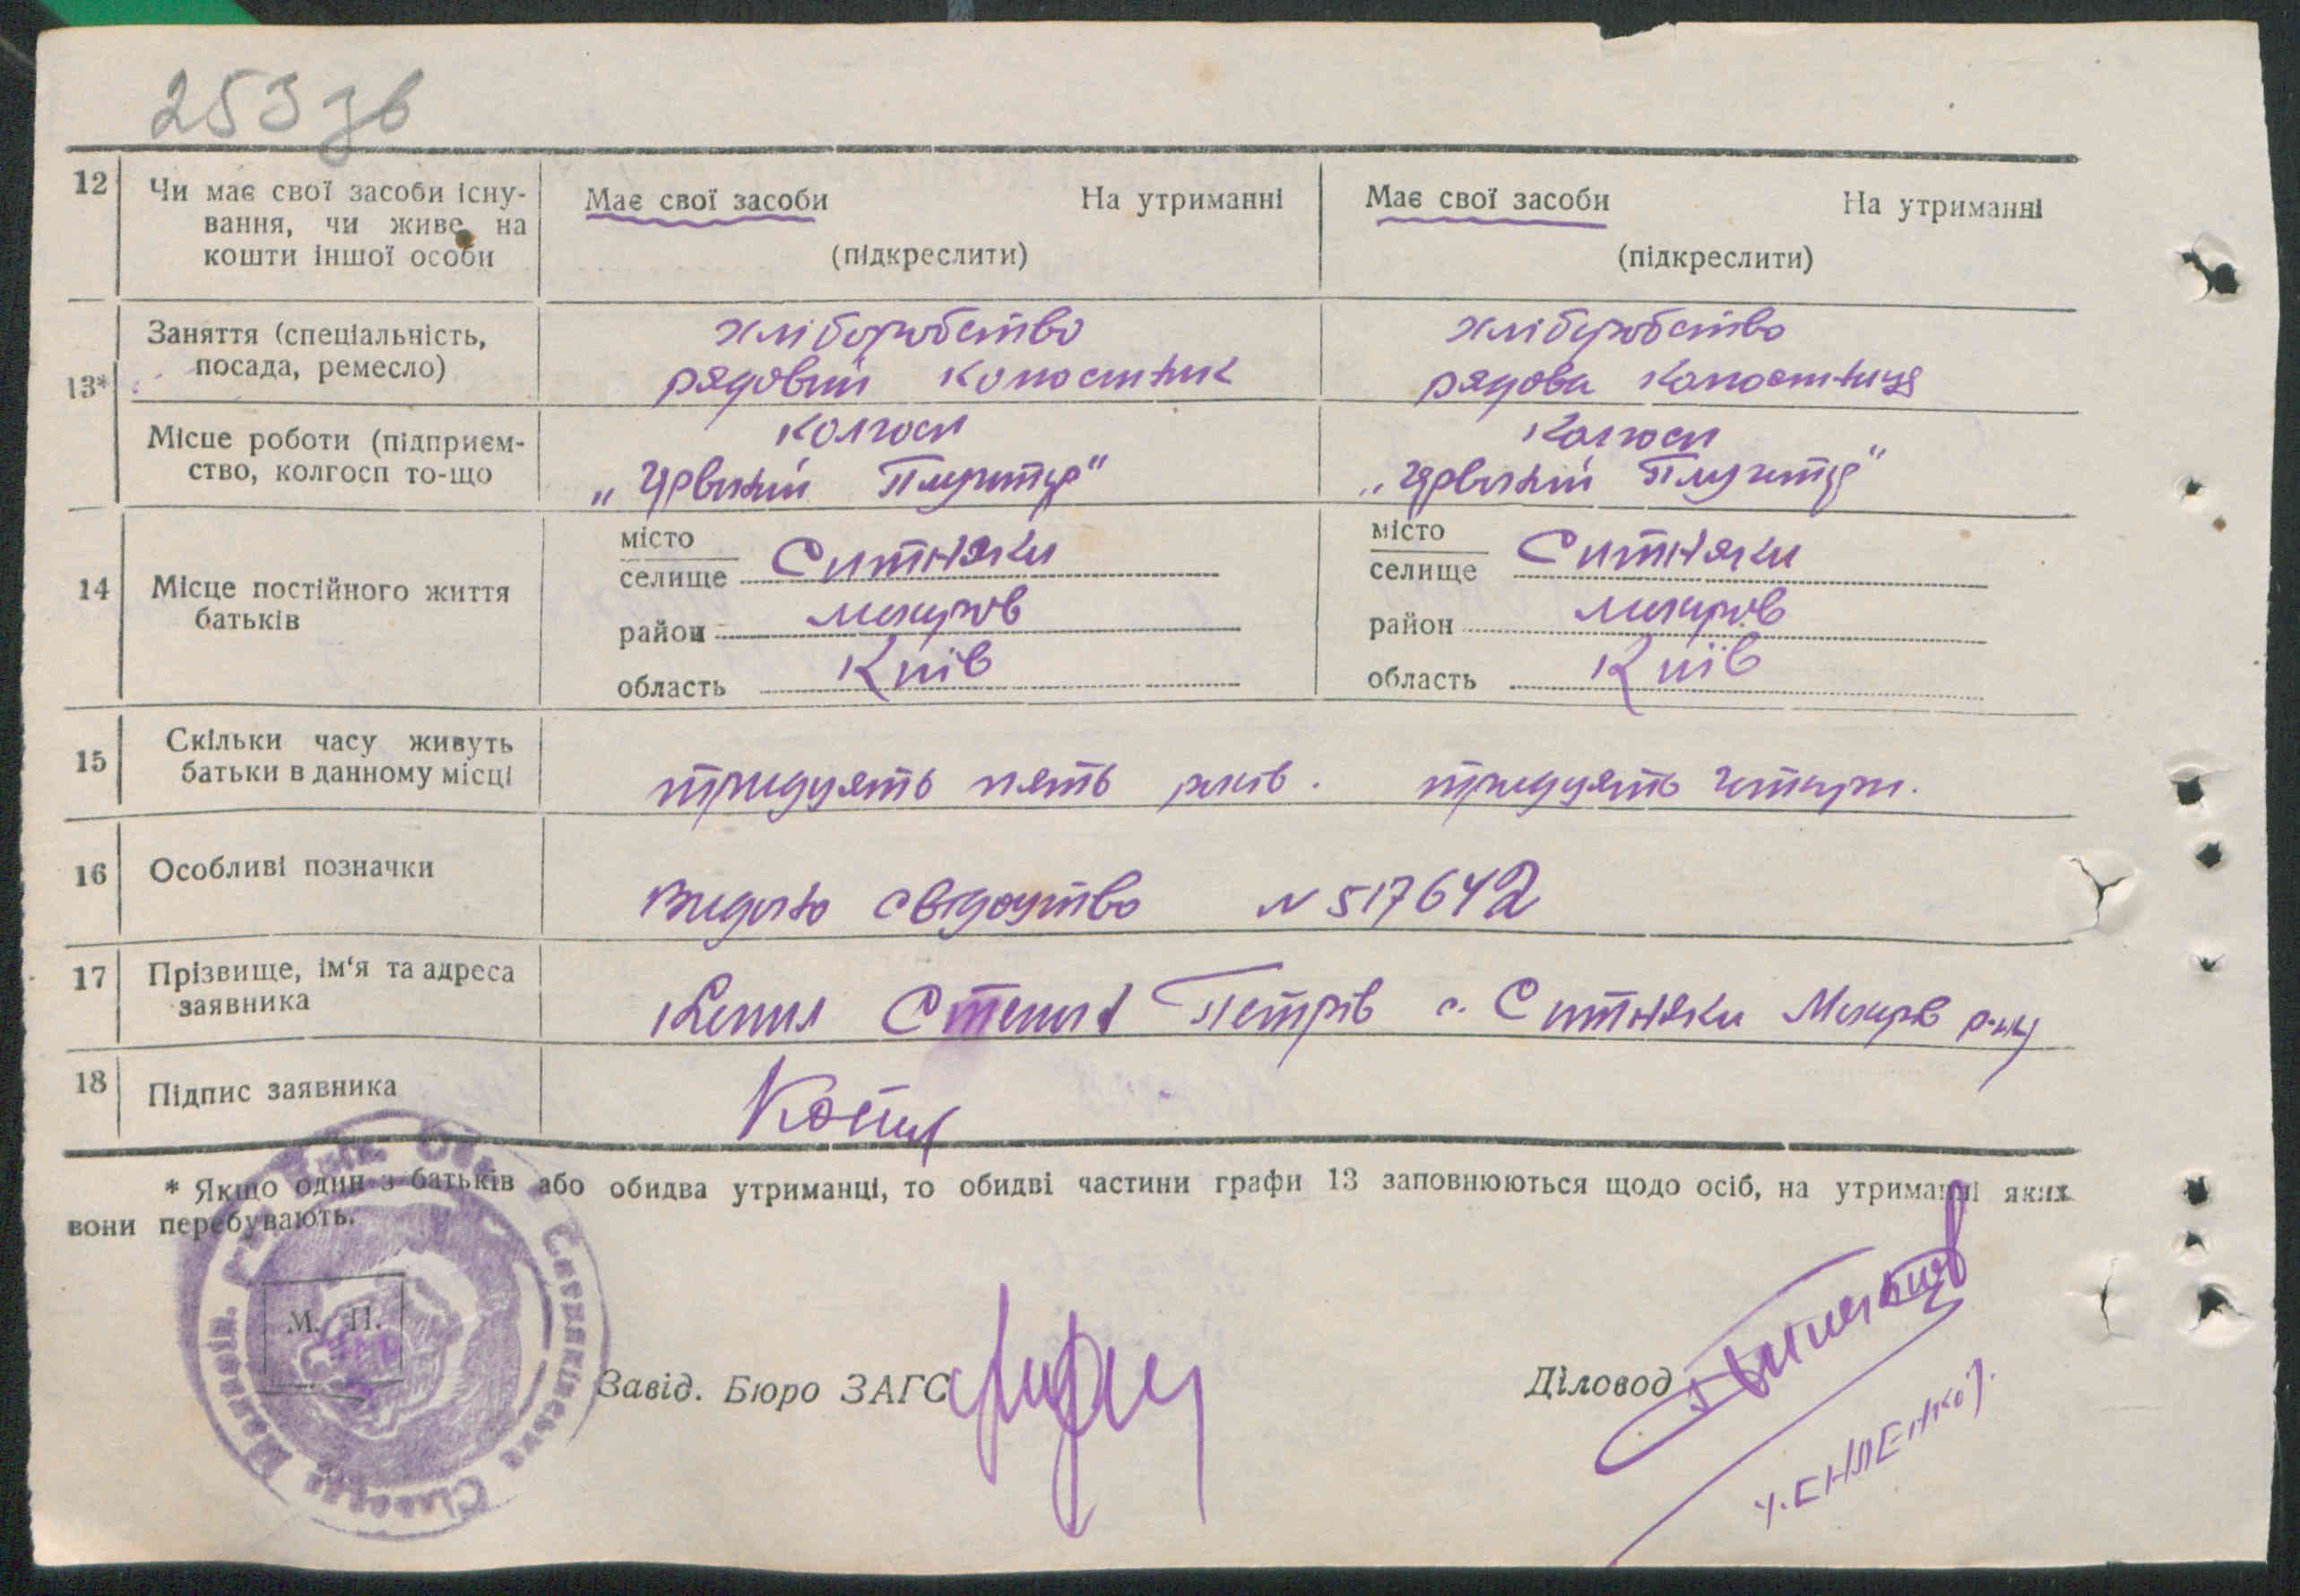 253 зв
12 Чи має свої засоби існу- Має свої засоби На утриманні Має свої засоби На утриманні
вання, чи живе на
кошти іншої особи (підкреслити) (підкреслити)
Заняття (спеціальність, хліборобство хліборобство
13* посада, ремесло) рядовий колгоспник рядова колгоспниця
Місце роботи (підприєм- колгосп колгосп
ство, колгосп то-що „Червоний Плугатар" „Червоний Плугатар"
місто місто
селище Ситняки селище Ситняки
14 Місце постійного життя
батьків район Макарів район Макарів
область Київ область Київ
15 Скільки часу живуть
батьки в данному місці тридцять пять років. тридцять чотири.
16 Особливі позначки
Видано свідоцтво N 517642
17 Прізвище, ім'я та адреса
заявника Степан Петрів с. Ситняки Макарів р-ну
18 Підпис заявника
* Якщо один з батьків або обидва утриманці, то обидві частини графи 13 заповнюються щодо осіб, на утриманні яких
вони перебувають.
М. П.
Завід. Бюро ЗАГС
Діловод